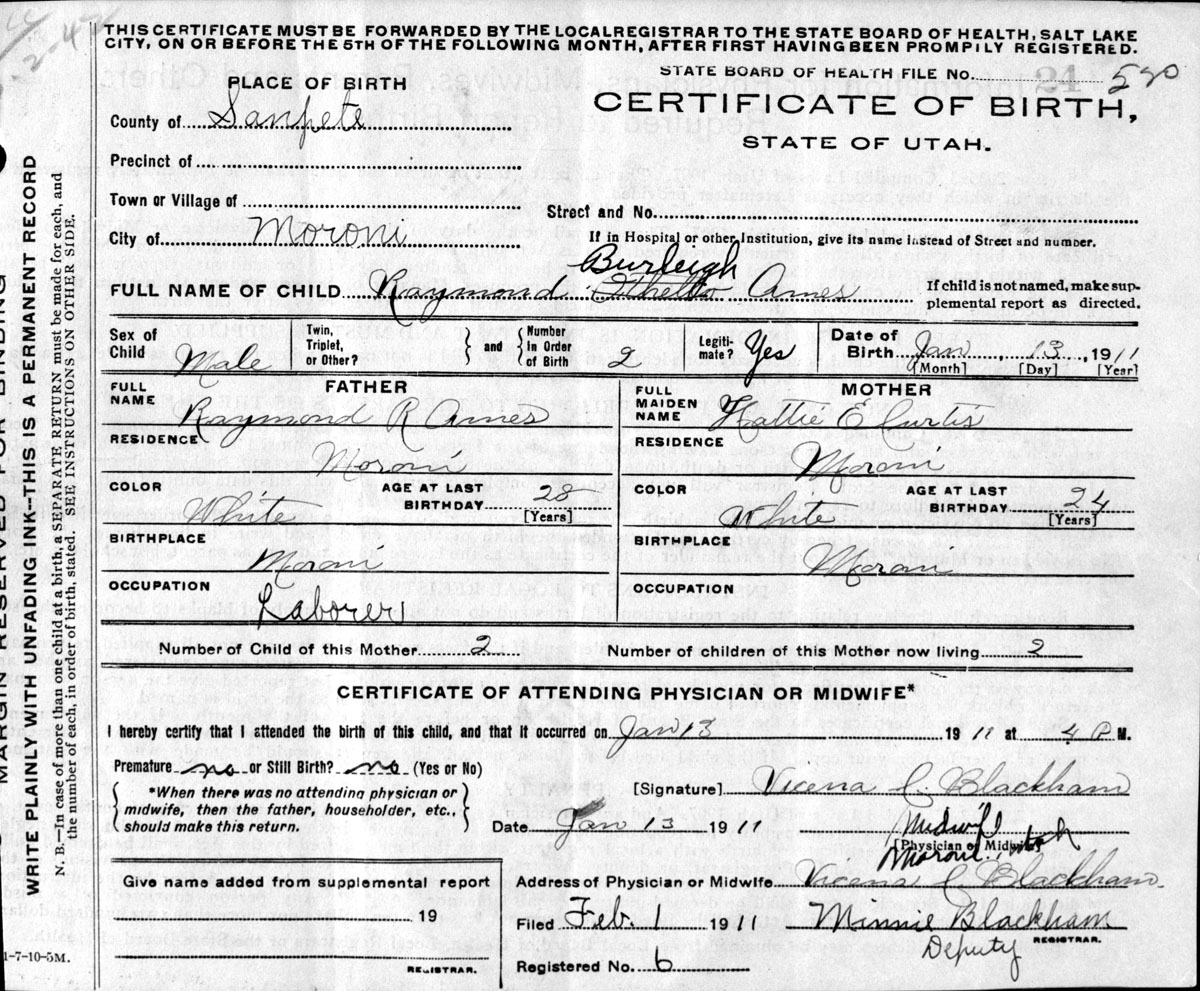 THIS CERTIFICATE MUST BE FORWARDED BY THE LOCALREGISTRAR TO THE STATE BOARD OF HEALTH, SALT LAKE
CITY, ON OR BEFORE THE 5TH OF THE FOLLOWING MONTH, AFTER FIRST HAVING BEEN PROMPILY REGISTERED.
STATE BOARD OF HEALTH FILE No. 24 590
PLACE OF BIRTH
CERTIFICATE OF BIRTH,
STATE OF UTAH.
County of Sanpete
Precinct of
Town or Village of
Street and No.
City of Moroni
If in Hospital or other Institution, give its name instead of Street and number.
Burleigh
FULL NAME OF CHILD Raymond Othello Ames
If child is not named, make sup-
plemental report as directed.
Sex of Child Male
Twin, Triplet, or Other?
and
Number In Order of Birth 2
Legiti-mate? Yes
Date of Birth Jan, 13, 1911
[Month] [Day] [Year]
FATHER
FULL NAME Raymond R Ames
RESIDENCE Moroni
COLOR White
AGE AT LAST BIRTHDAY 25
[Years]
BIRTHPLACE Moroni
OCCUPATION Laborer
MOTHER
FULL MAIDEN NAME Hattie E Curtis
RESIDENCE Moroni
COLOR White
AGE AT LAST BIRTHDAY 24
[Years]
BIRTHPLACE Moroni
OCCUPATION
Number of Child of this Mother 2
Number of children of this Mother now living 2
CERTIFICATE OF ATTENDING PHYSICIAN OR MIDWIFE*
I hereby certify that I attended the birth of this child, and that it occurred on Jan 13 1911 at 4 P M.
Premature no or Still Birth? no (Yes or No)
*When there was no attending physician or
midwife, then the father, householder, etc.,
should make this return.
[Signature] Vicena L. Blackham
Date Jan 13 1911
Midwife
[Physician or Midwife]
Moroni, Utah
Address of Physician or Midwife Vicena L Blackham
Give name added from supplemental report
19
REGISTRAR.
Filed Feb. 1 1911 Minnie Blackham
Deputy REGISTRAR.
Registered No. 6
1-7-10-5M.
MARGIN RESERVED FOR BINDING
WRITE PLAINLY WITH UNFADING INK--THIS IS A PERMANENT RECORD
N. B.—In case of more than one child at a birth, a SEPARATE RETURN must be made for each, and
the number of each, in order of birth, stated. SEE INSTRUCTION ON OTHER SIDE.